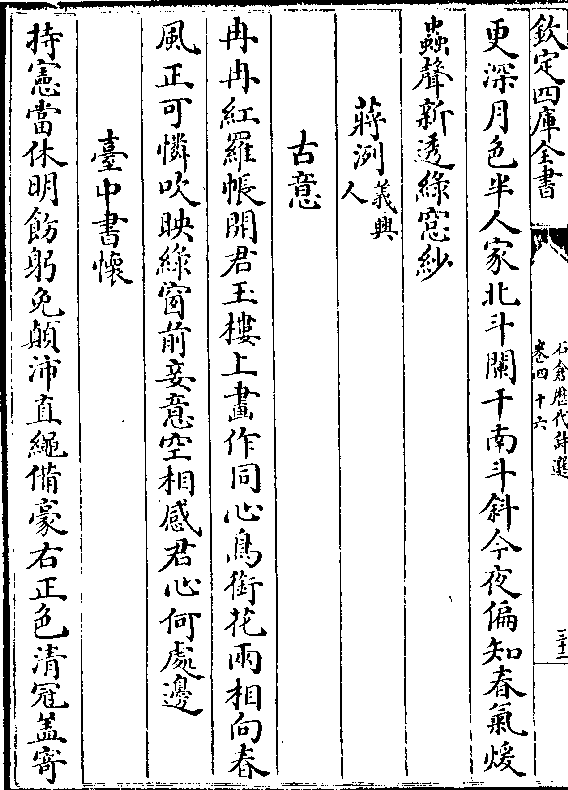 欽定四庫全書
石倉歷代詩選
卷四十六
三十二
更深月色半人家北斗闌干南斗斜今夜偏知春氣煖
蟲聲新透緑窓紗
蔣洌義興人
古意
冉冉紅羅帳開君玉樓上畫作同心鳥銜花兩相向春
風正可憐吹映緑窗前妾意空相感君心何處邊
臺中書懷
持憲當休明飭躬免顛沛直繩備豪右正色清冠蓋寄